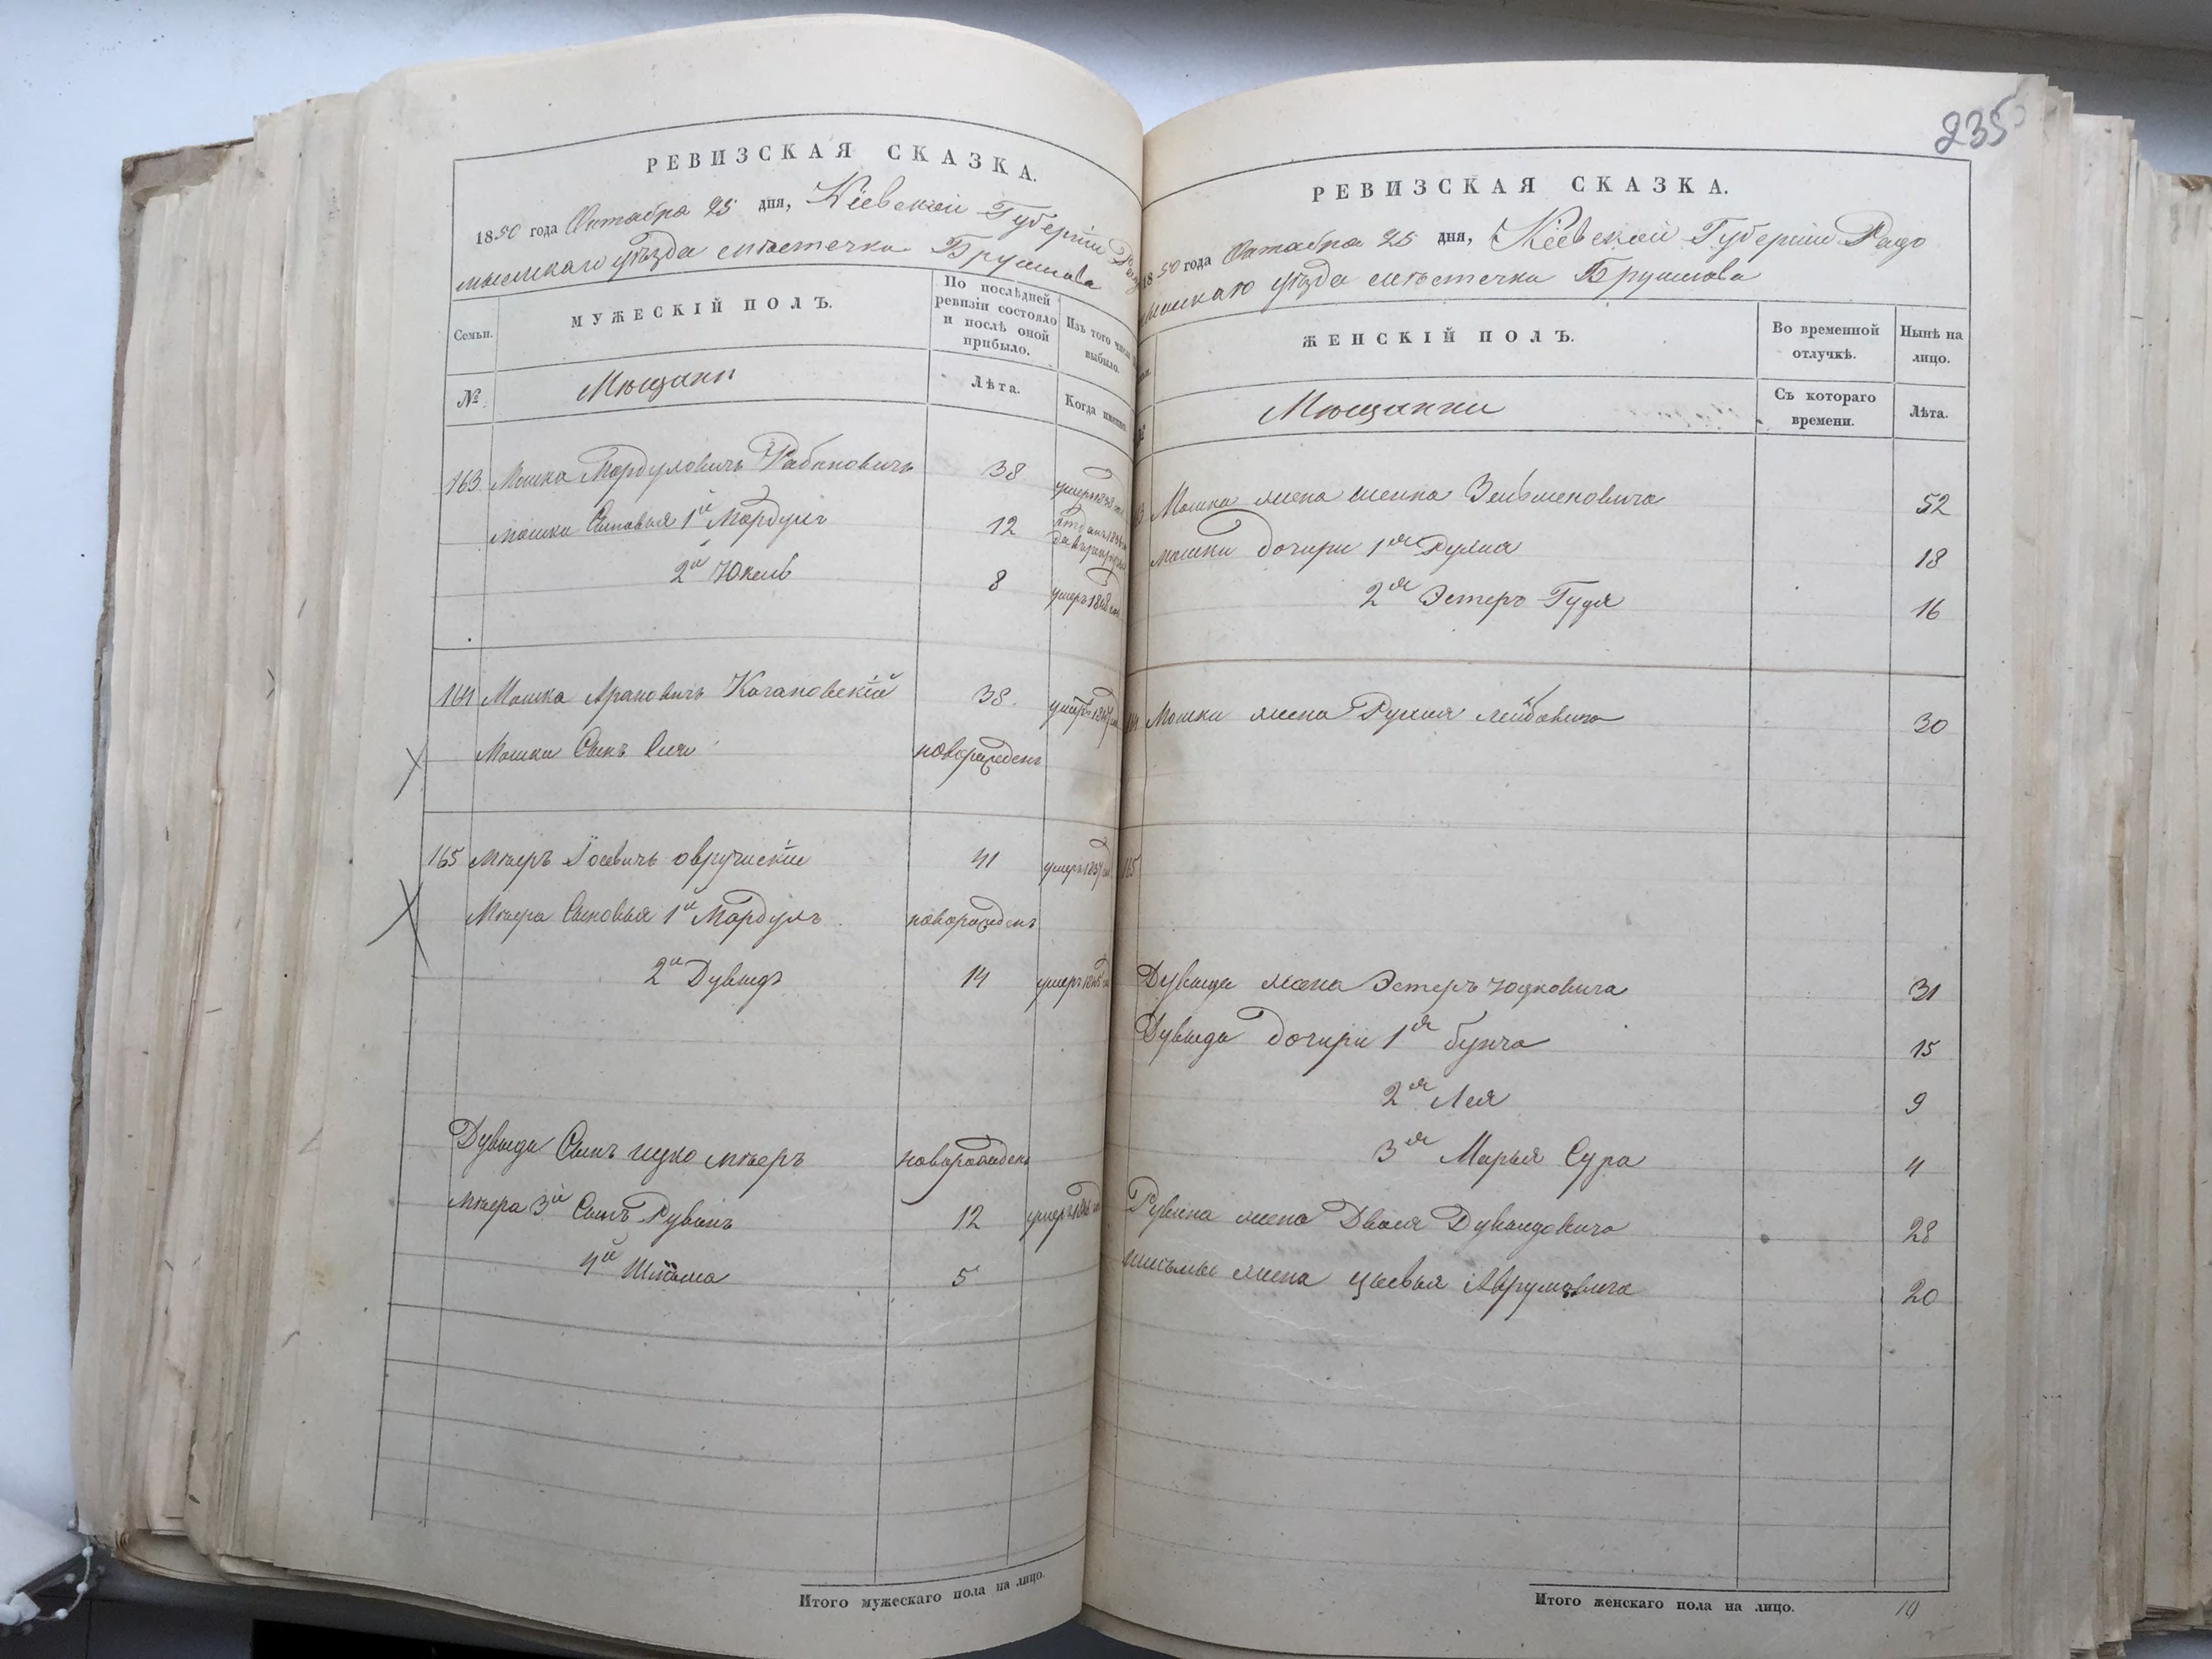 РЕВИЗСКАЯ СКАЗКА.
1850 года Октабра 25 дня, Кіевской Губерніи Радо
мысльскаго уѣзда мѣстечка Брусилова
Семьи.
МУЖЕСКІЙ ПОЛЪ.
По послѣдней ревизіи состояло и послѣ оной прибыло.
Изъ того числа выбыло.
№
Мѣщани
Лѣта.
Когда именно.
163 Мошка Мордуховичъ Рабиновичъ 38 умеръ
Мошки Сыновья 1й Мордухъ 12 отданъ
2й Юкель 8 умеръ 1848
164 Мошка Ароновичъ Кагановскій 38 умеръ
Мошки Сынъ новорожденъ
165 Мѣеръ Іосевичъ овручскій 41 умеръ
Мѣера Сыновья 1й Мордухъ новорожденъ
2й Дувидъ 14 умеръ
Дувида Сынъ ицко мѣеръ новорожденъ
Мѣера 3й Сынъ Рувинъ 12 умеръ
4й Шлёма 5
Итого мужескаго пола на лицо.
235
РЕВИЗСКАЯ СКАЗКА.
1850 года Октабра 25 дня, Кіевской Губерніи Радо
мысльскаго уѣзда мѣстечка Брусилова
ЖЕНСКІЙ ПОЛЪ.
Во временной отлучкѣ.
Нынѣ на лицо.
№
Мѣщанки
Съ котораго времени.
Лѣта.
Мошка жена Зельмановича 52
Мошки дочири 1я 18
2я Эстеръ Гудя 16
Мошки жена Рухля лейбовичо 30
165
Дувида жена Эстеръ Юдковича 31
Дувида дочири 1я бунча 15
2я Лея 9
3я Марья Сура 4
Рувина жена Двоея Дувидовича 28
шлемы жена цывья Аврумовича 20
Итого женскаго пола на лицо. 10